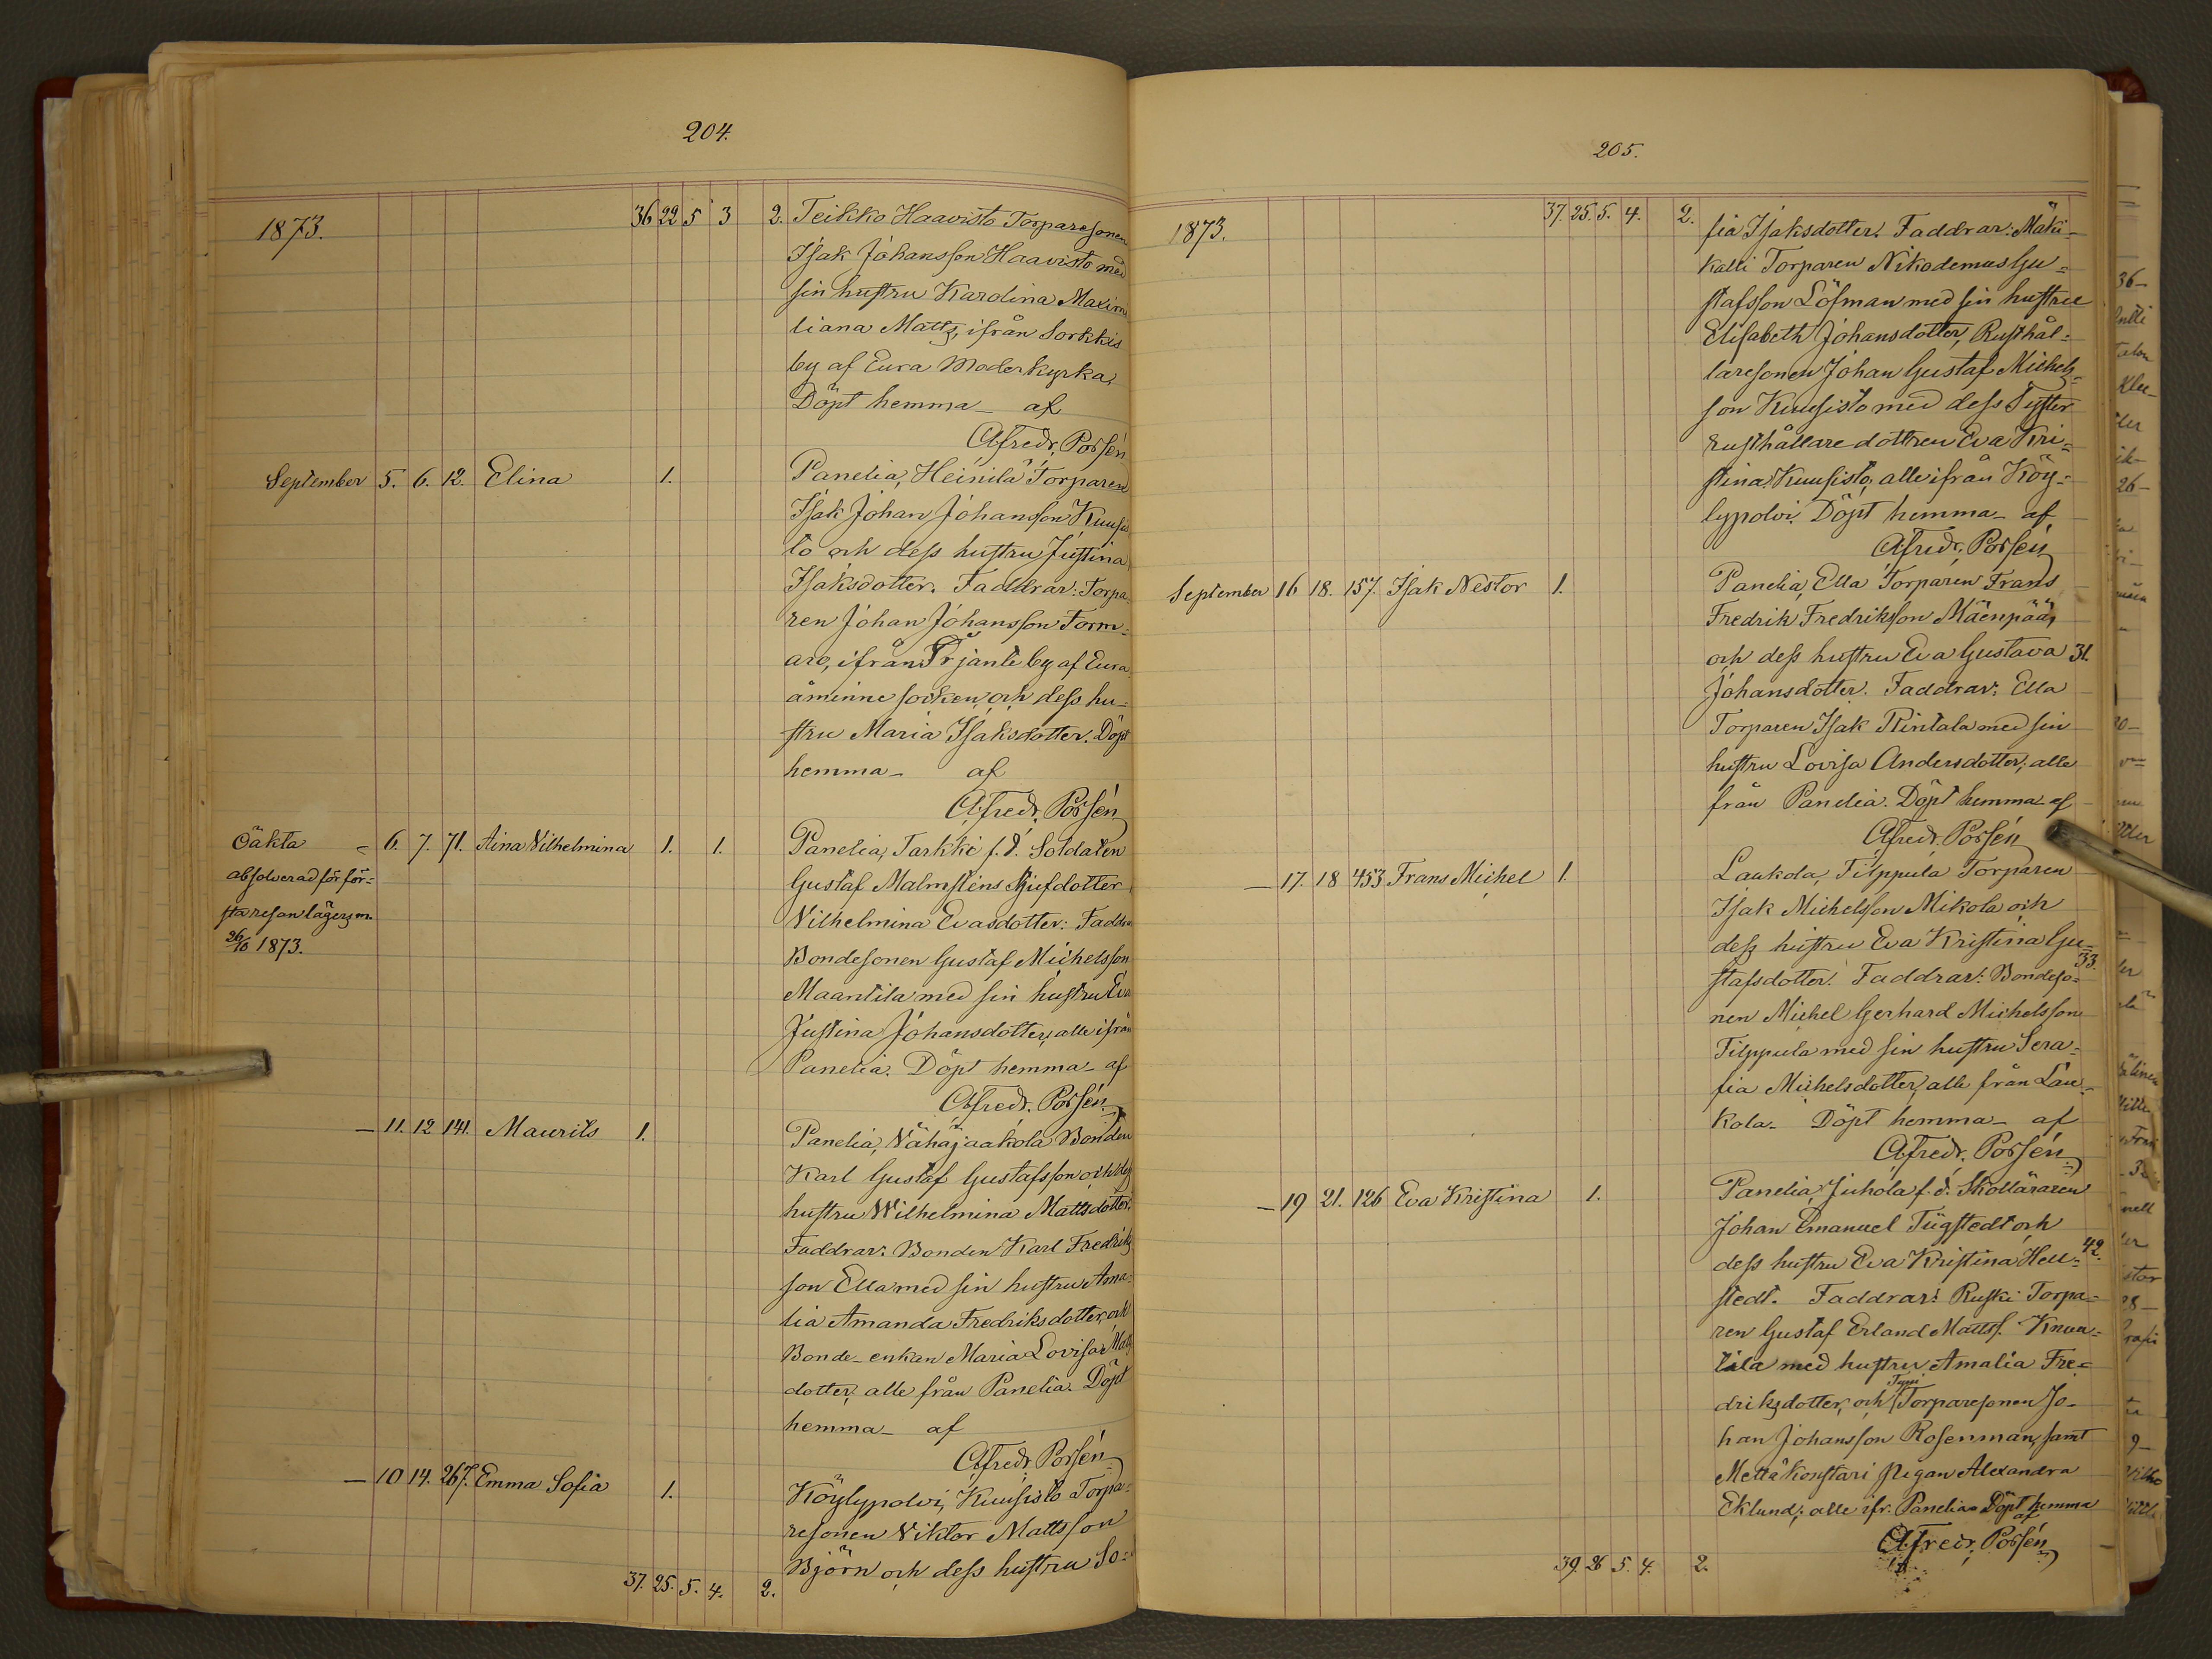 204.
1873. 36 22 5 3 2. Teikko Haavisto Torparesonen
Isak Johansson Haavisto med
sin hustru Karolina Maximi
liana Matts, ifrån Sorkkis
by af Eura Moderkyrka,
Döpt hemma _ af
Afredr. Porsén
September 5. 6. 12. Elina 1. Panelia, Heinilä Torparen
Isak Johan Johansson Kuusis
to och dess hustru Justina
Isaksdotter. Faddrar: Torpa
ren Johan Johansson Torm-
aro, ifrån by af Eura
åminne socken, och dess hu-
stru Maria Isaksdotter. Döpt
hemma _ af
Afredr. Porsén
Oäkta = 6. 7. 71. Aina Vilhelmina 1. 1. Panelia, Tarkki f.d. Soldaten
absolverad för för=
sta resan lägersm.
26/10 1873.
Gustaf Malmstens Styfdotter
Vilhelmina Evasdotter: Faddra
Bondesonen Gustaf Michelsson
Maantila med sin hustru Eva
Justina Johansdotter, alle ifrån
Panelia. Döpt hemma _ af
Afredr. Porsén
_ 11. 12 141. Maurits 1. Panelia, Vähäjaakola Bonden
Karl Gustaf Gustafsson och dess
hustru Wilhelmina Mattsdotter.
Faddrar: Bonden Karl Fredriks
son Ella med sin hustru Ama-
lia Amanda Fredriksdotter, och
Bonde-enkan Maria Lovisa Matts
dotter, alle från Panelia. Döpt
hemma _ af
Afredr. Porsén
_ 10 14. 267. Emma Sofia 1. Köylypolvi, Kuusisto Torpa-
resonen Viktor Mattsson
Björn och dess hustru So-
37. 25. 5. 4. 2.
205.
1873. 37. 25. 5. 4. 2. fia Isaksdotter. Faddrar: Mäki-
kalli Torparen Nikodemus Gu=
stafsson Löfman med sin hustru
Elisabeth Johansdotter, Rusthål=
laresonen Johan Gustaf Michels=
son Kuusisto med dess Syster
rusthållaredottren Eva Kri=
stina Kuusisto, alle ifrån Köy=
lypolvi. Döpt hemma _ af
Afredr. Porsén
September 16 18. 157. Isak Nestor 1. Panelia, Ella Torparen Frans
Fredrik Fredriksson Mäenpää,
och dess hustru Eva Gustava 31.
Johansdotter. Faddrar: Ella
Torparen Isak Rintala med sin
hustru Lovisa Andersdotter; alle
från Panelia. Döpt hemma _ af
Afredr. Porsén
_ 17. 18 453 Frans Michel 1. Laukola, Filppula Torparen
Isak Michelsson Mikola och
dess hustru Eva Kristina Gu= 33.
stafsdotter. Faddrar: Bondeso=
nen Michel Gerhard Michelsson
Filppula med sin hustru Sera=
fia Michelsdotter, alle från Lau=
kola _ Döpt hemma _ af
Afredr. Porsén
_ 19 21. 126 Eva Kristina 1. Panelia, Juhola f.d. Skolläraren
Johan Emanuel Tügstedt och
dess hustru Eva Kristina Hell= 42.
stedt. Faddrar: Ruski Torpa=
ren Gustaf Erland Matts. Knuu=
tila med hustru Amalia Fre=
driksdotter, och Torparesonen Jo-
han Johansson Rosenman, samt
Mettäkonstari pigan Alexandra
Eklund; alle ifr. Panelia. Döpt hemma
af
Afredr. Porsén
39. 26 5. 4. 2.